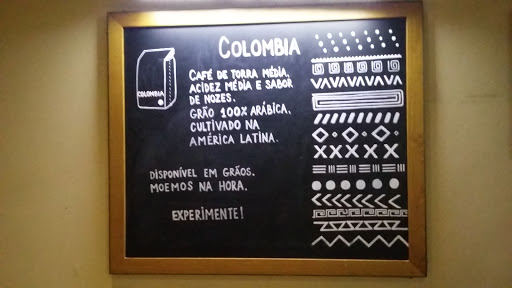 COLOMBIA
COLOMBIA
CAFÉ DE TORRA MÉDIA,
ACIDEZ MÉDIA E SABOR
DE NOZES.
GRÃO 100% ARÁBICA,
CULTIVADO NA
AMÉRICA LATINA.
DISPONÍVEL EM GRÃOS.
MOEMOS NA HORA.
EXPERIMENTE!